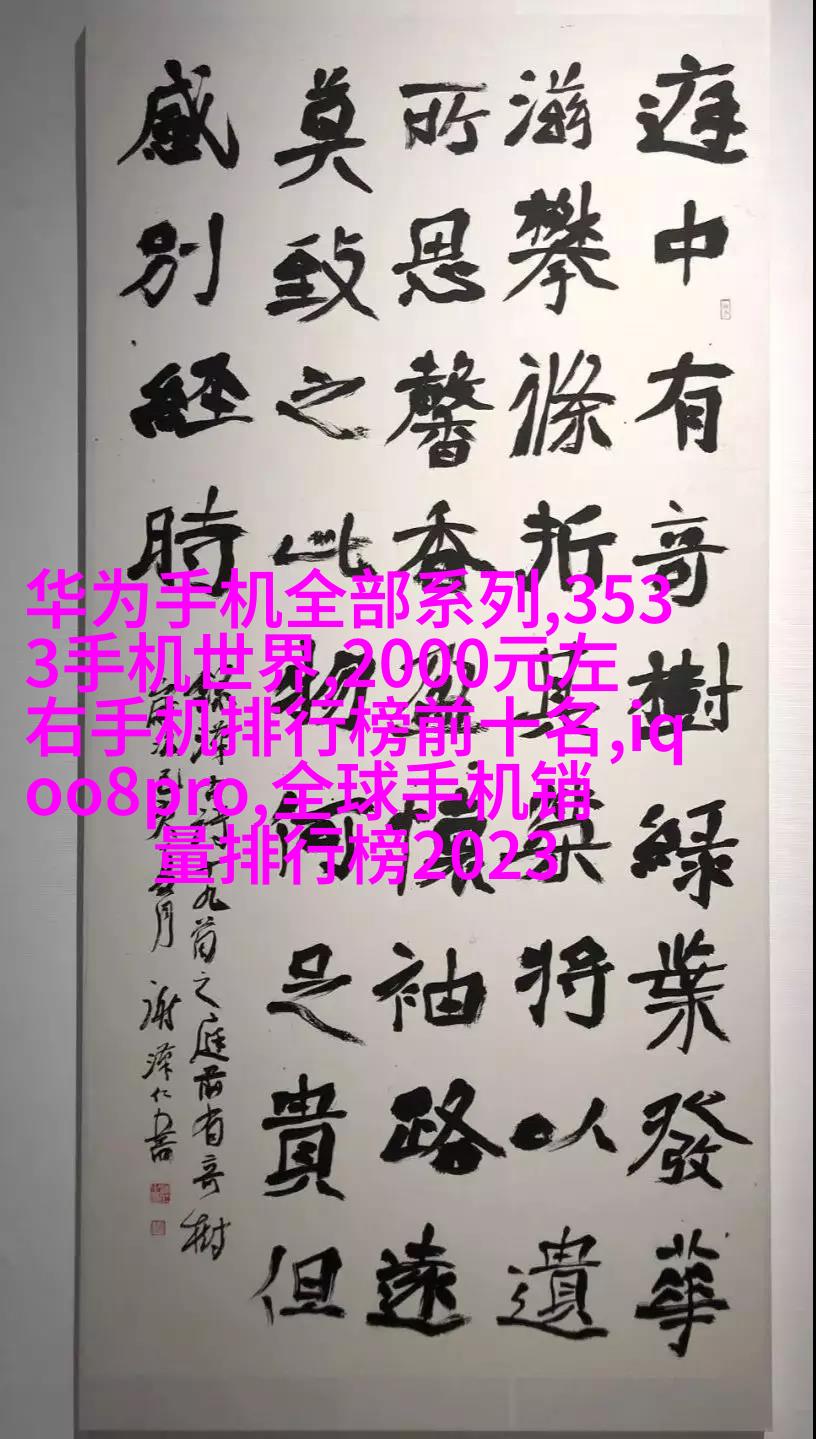 庭中有奇樹綠葉發華
滋攀條折其榮將以遺
所思馨香盈懷袖路遠
莫致之此物何足貴但
感別經時
古詩十九首之庭前有奇樹
月 謝澤仁書
华为手机全部系列,353
3手机世界,2000元左
右手机排行榜前十名,iq
oo8pro,全球手机销
量排行榜2023